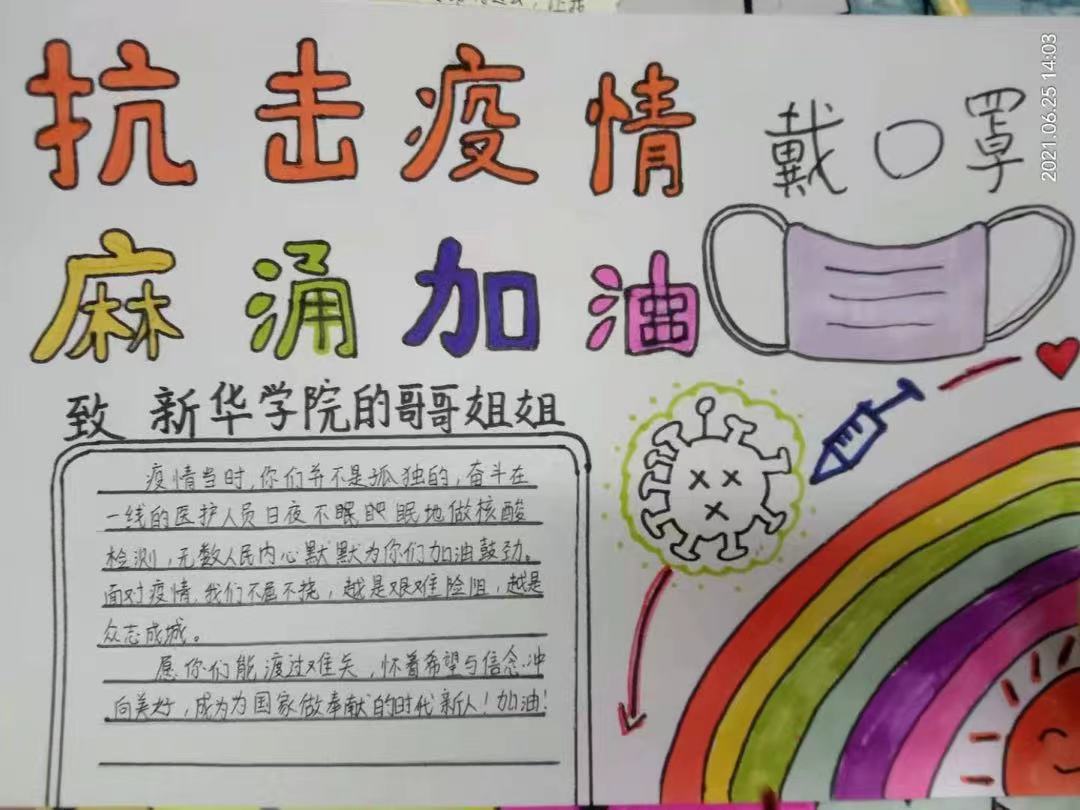 抗击疫情
戴口罩
麻涌加油
致 新华学院的哥哥姐姐
疫情当时,你们并不是孤独的,奋斗在
一线的医护人员日夜不眠眠地做核酸
检测,无数人民内心默默为你们加油鼓劲。
面对疫情,我们不屈不挠,越是艰难险阻,越是
众志成城。
愿你们能渡过难关,怀着希望与信念冲
向美好,成为为国家做奉献的时代新人!加油!
2021.06.25 14:03